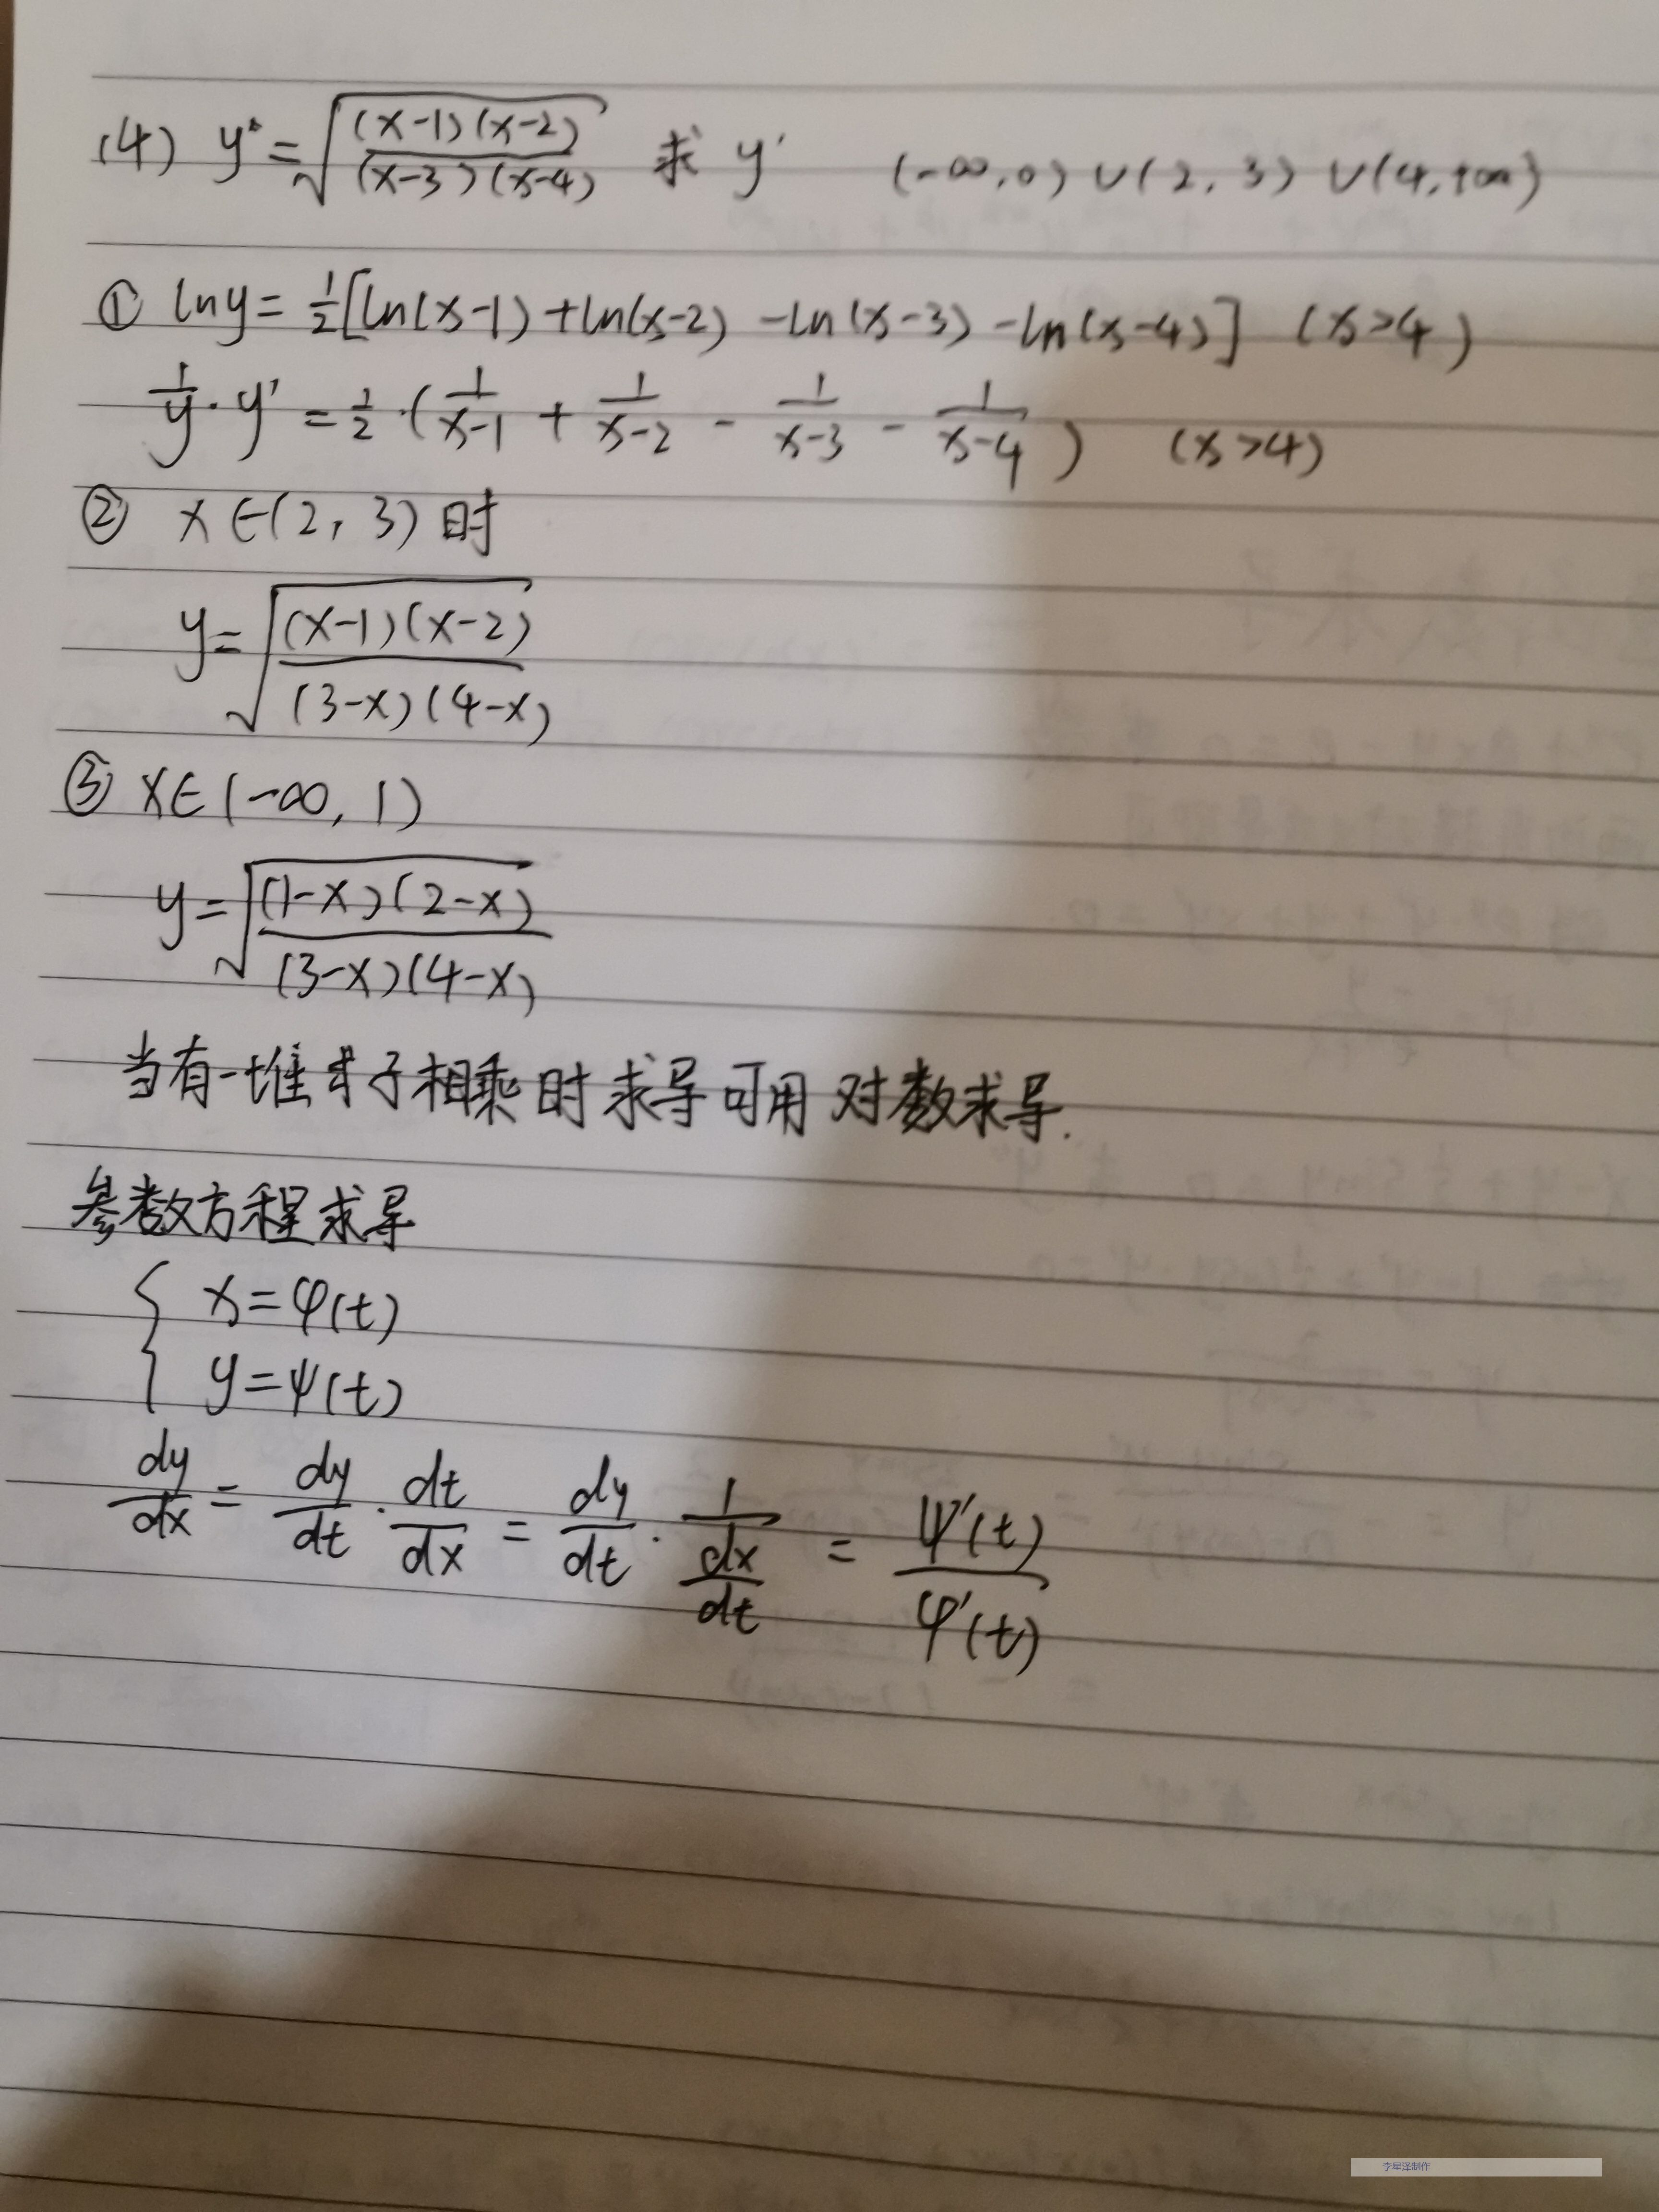 (4) y = √((x-1)(x-2)/(x-3)(x-4)) 求 y' (-∞,0)∪(2,3)∪(4,+∞)
① lny = 1/2[ln(x-1)+ln(x-2)-ln(x-3)-ln(x-4)] (x>4)
1/y · y' = 1/2 · (1/(x-1) + 1/(x-2) - 1/(x-3) - 1/(x-4)) (x>4)
② x∈(2,3)时
y = √((x-1)(x-2)/(3-x)(4-x))
③ x∈(-∞,1)
y = √((1-x)(2-x)/(3-x)(4-x))
当有一堆式子相乘时求导可用对数求导.
参数方程求导
{ x=φ(t)
y=ψ(t)
dy/dx = dy/dt · dt/dx = dy/dt · 1/(dx/dt) = ψ'(t)/φ'(t)
李星泽制作